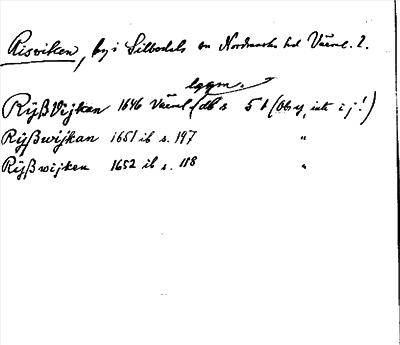 Risviken, by i Silbodals sn Nordmarks hd Värml. l.
lagm.
RÿßVijkan 1646 Värml db s 5 t (Obs y, inte ij!)
Rÿßwijkan 1651 ib s. 197 "
Rÿßwijken 1652 ib s. 118 "